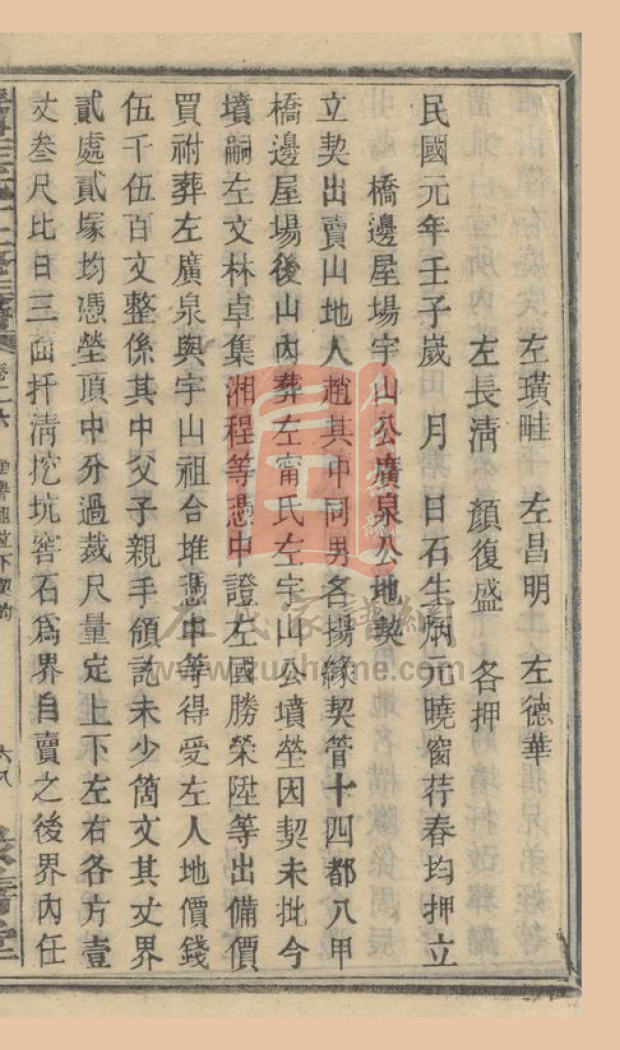 左璜畦　左昌明　左德華
左長淸　顔復盛　各押
民國元年壬子嵗　月　日石生炳元曉窗荇春均押立
橋邊屋場宇山公廣泉公地契
立契出賣山地人趙其中同男各揚緣契管十四都八甲
橋邊屋場後山內葬左甯氏左宇山公墳塋因契未批今
墳嗣左文林卓集湘程等憑中證左國勝榮陞等出備價
買祔葬左廣泉與宇山祖合堆憑中等得受左人地價錢
伍千伍百文整係其中父子親手領訖未少箇文其丈界
貳處貳塚均憑塋頂中分過裁尺量定上下左右各方壹
丈叁尺比日三面扦淸挖坑窖石爲界自賣之後界內任
六八
左氏家譜網
www.zuohome.com